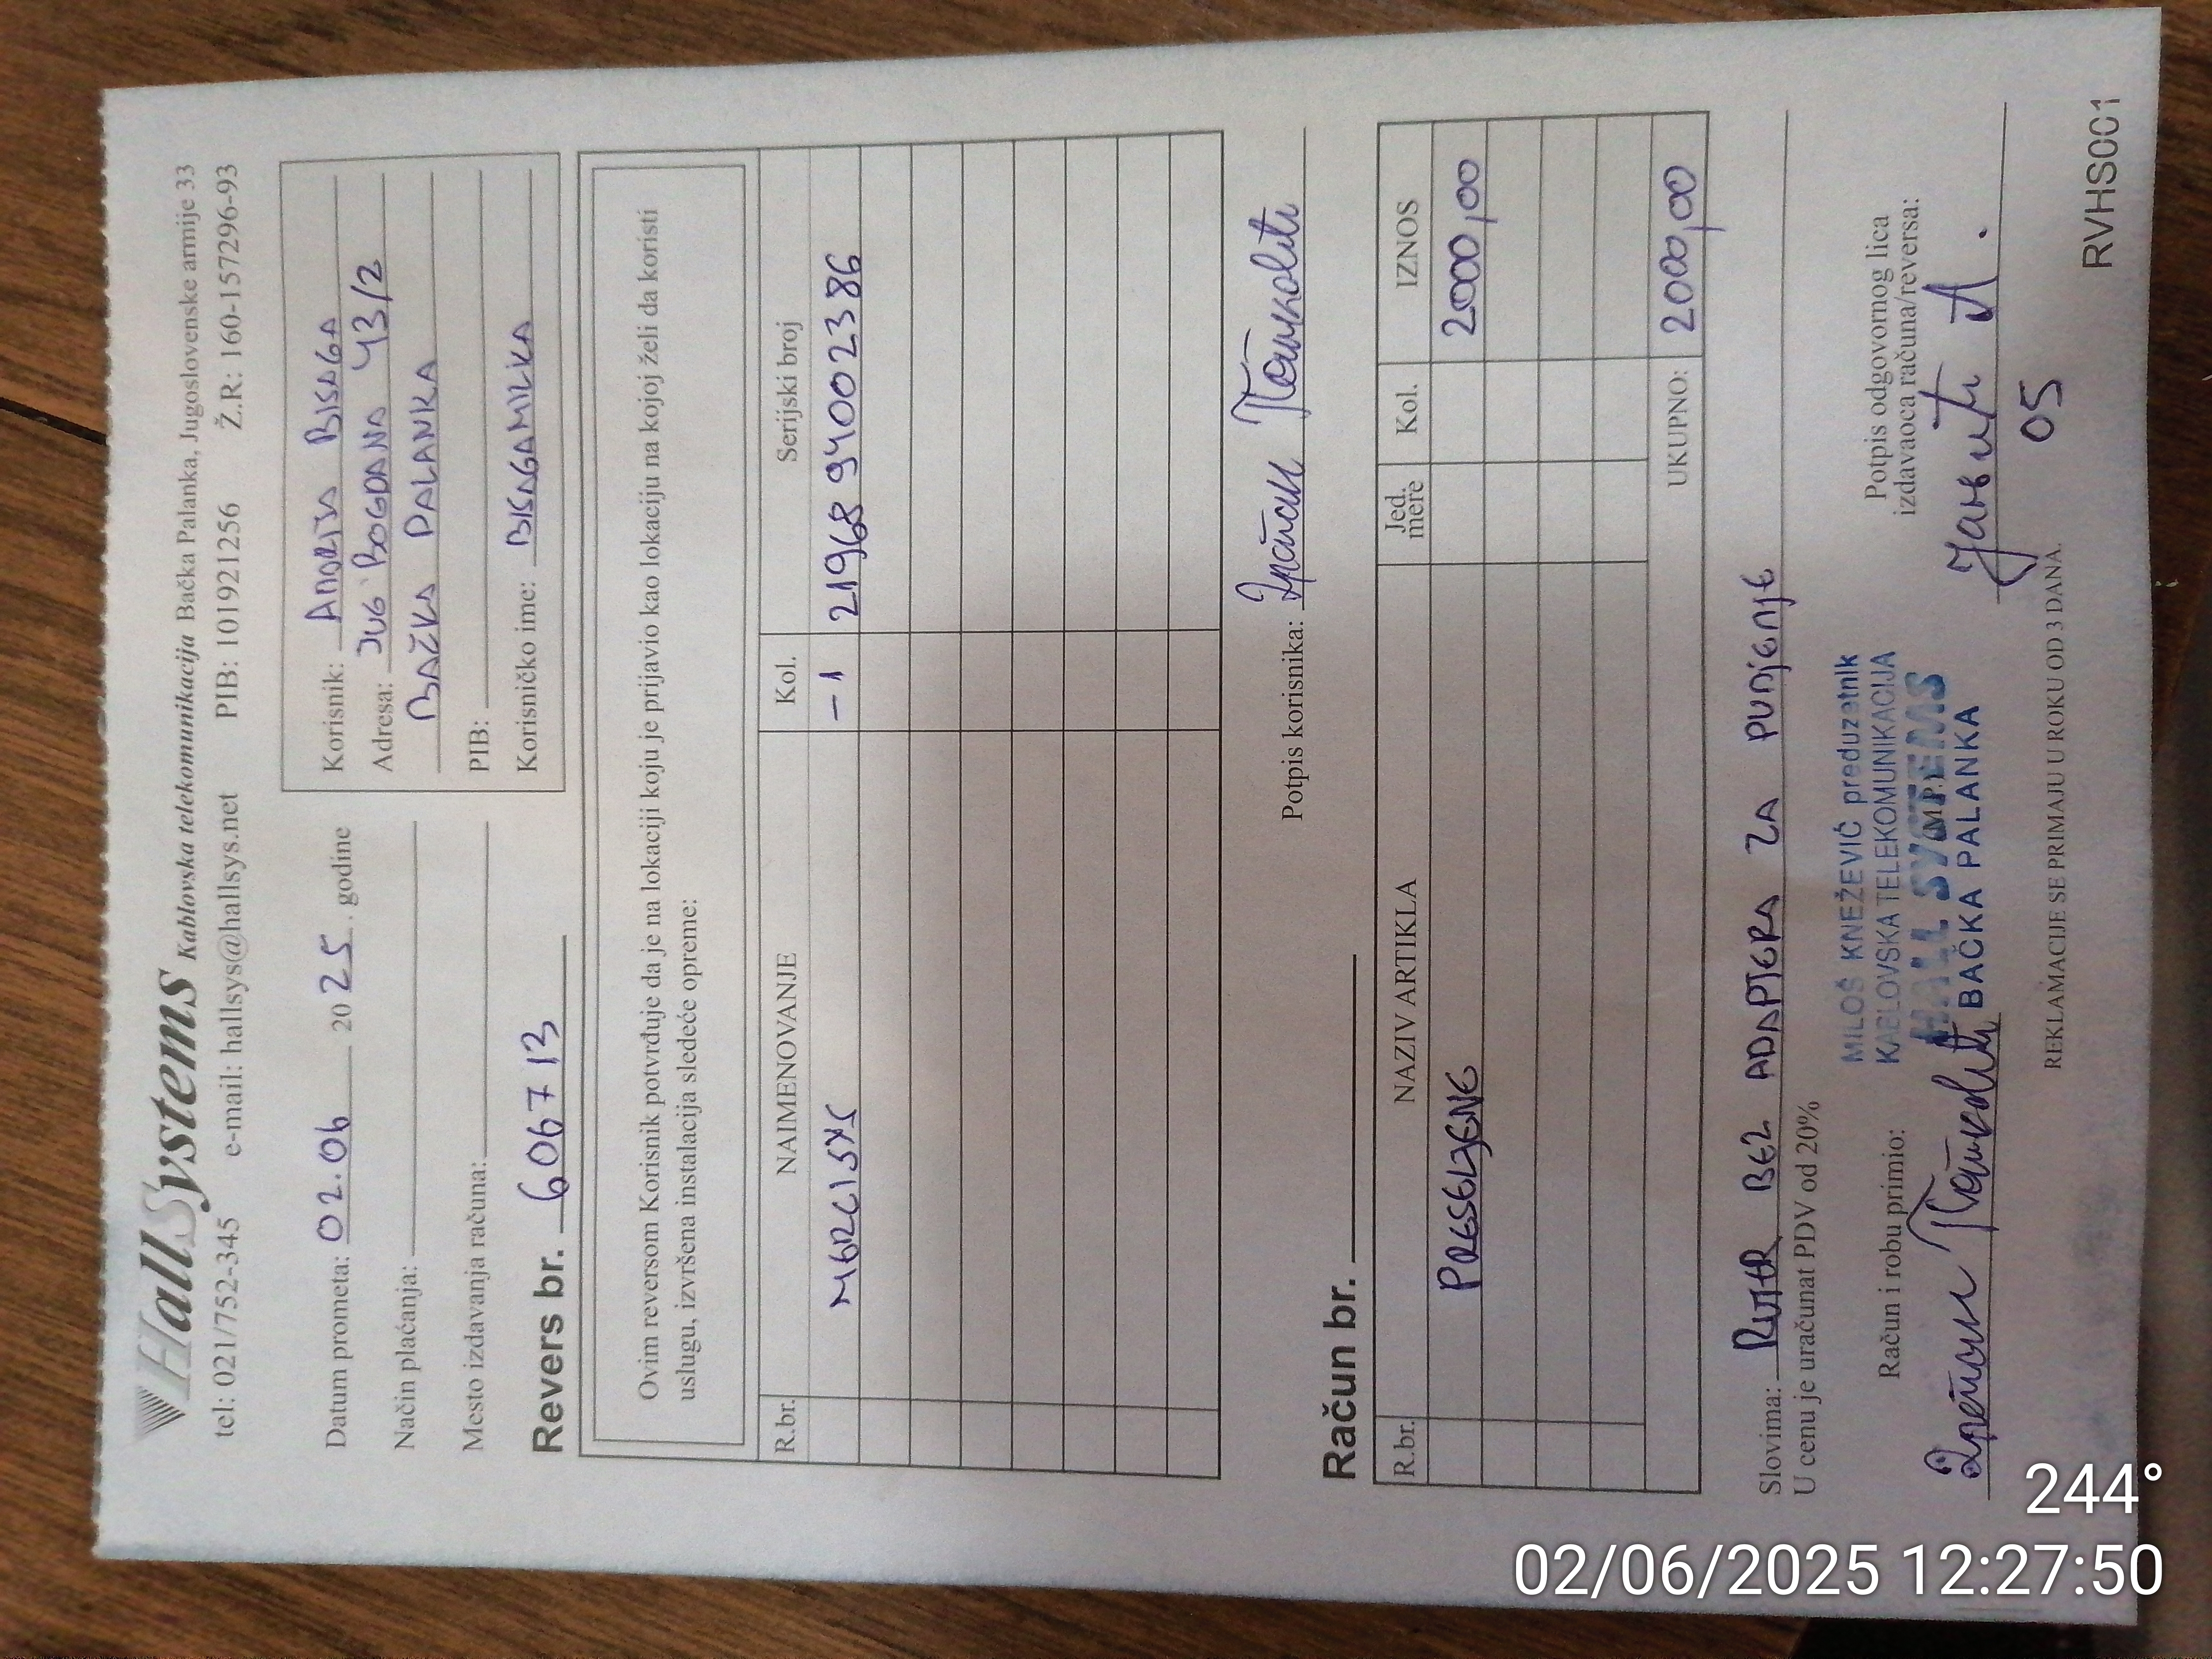 HallSystems Kablovska telekomunikacija Bačka Palanka, Jugoslovenske armije 33
tel: 021/752-345 e-mail: hallsys@hallsys.net PIB: 101921256 Ž.R: 160-157296-93
Datum prometa: 02.06 2025. godine
Način plaćanja:
Mesto izdavanja računa:
Korisnik: ANDRIJA BISAGA
Adresa: JUG BOGDANA 43/2
BAČKA PALANKA
PIB:
Korisničko ime: BISAGAMILKA
Revers br. 606713
Ovim reversom Korisnik potvrđuje da je na lokaciji koju je prijavio kao lokaciju na kojoj želi da koristi
uslugu, izvršena instalacija sledeće opreme:
R.br. NAIMENOVANJE Kol. Serijski broj
-1 2196894002386
Potpis korisnika:
Račun br.
R.br. NAZIV ARTIKLA Jed. mere Kol. IZNOS
PRESELJENJE 2000,00
UKUPNO: 2000,00
Slovima: RUTER BEZ ADAPTERA ZA PUNJENJE
U cenu je uračunat PDV od 20%
Račun i robu primio:
MILOŠ KNEŽEVIĆ preduzetnik
KABLOVSKA TELEKOMUNIKACIJA
HALL SYSTEMS
M.P.
BAČKA PALANKA
Potpis odgovornog lica
izdavaoca računa/reversa:
05
REKLAMACIJE SE PRIMAJU U ROKU OD 3 DANA.
RVHS001
244°
02/06/2025 12:27:50